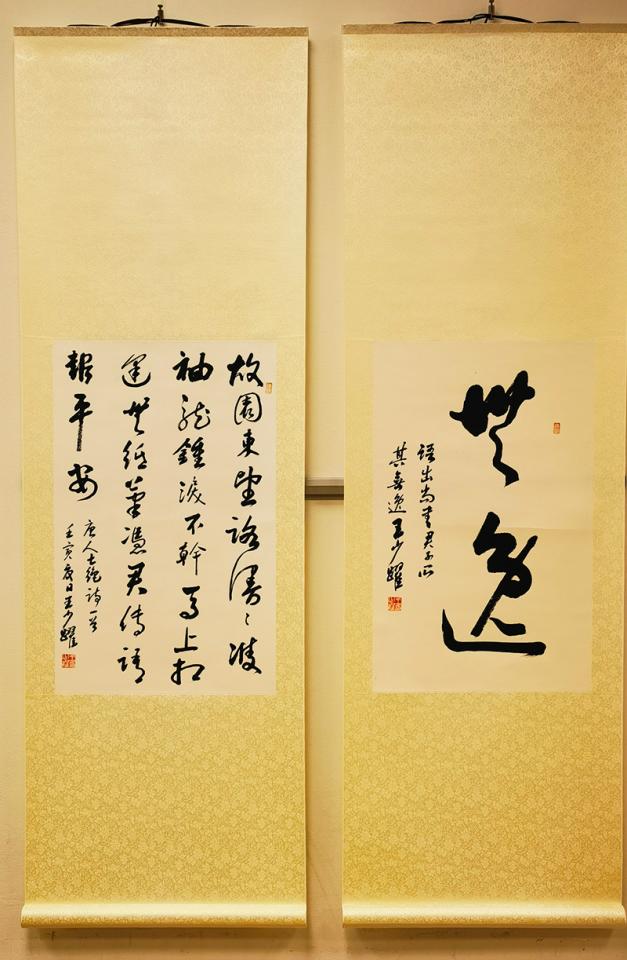 無逸
語出尚書君子所
其無逸王少耀
故園東望路漫〻雙
袖龍鍾淚不幹馬上相
逢無紙筆憑君傳語
報平安
唐人七絕詩一首
壬寅夏日王少耀